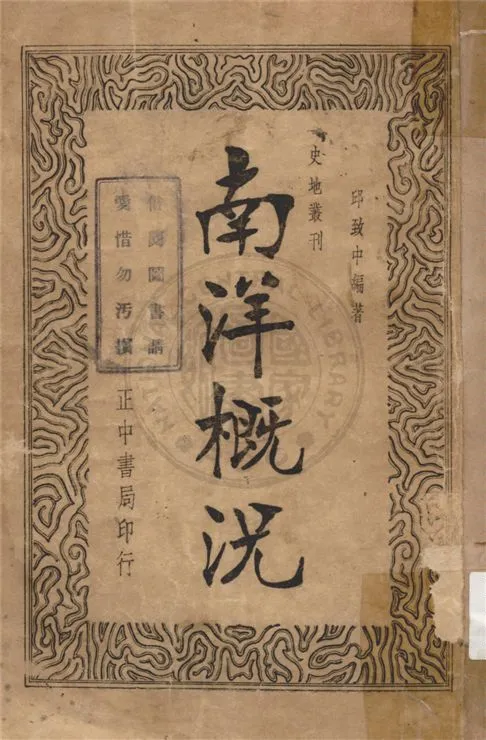 邱致中編著
史地叢刊
南洋概況
借閱圖書請
愛惜勿污損
正中書局印行
LIBRARY